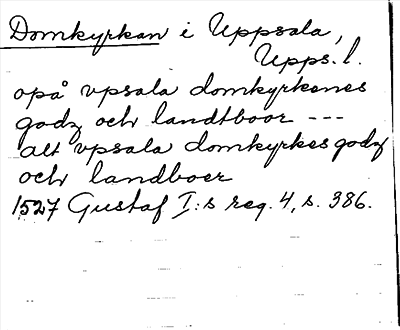 Domkyrkan i Uppsala,
Upps. l.
opå vpsala domkyrkenes
godz och landtboor ---
alt vpsala domkyrkes godz
och landboer
1527 Gustaf I:s reg. 4, s. 386.